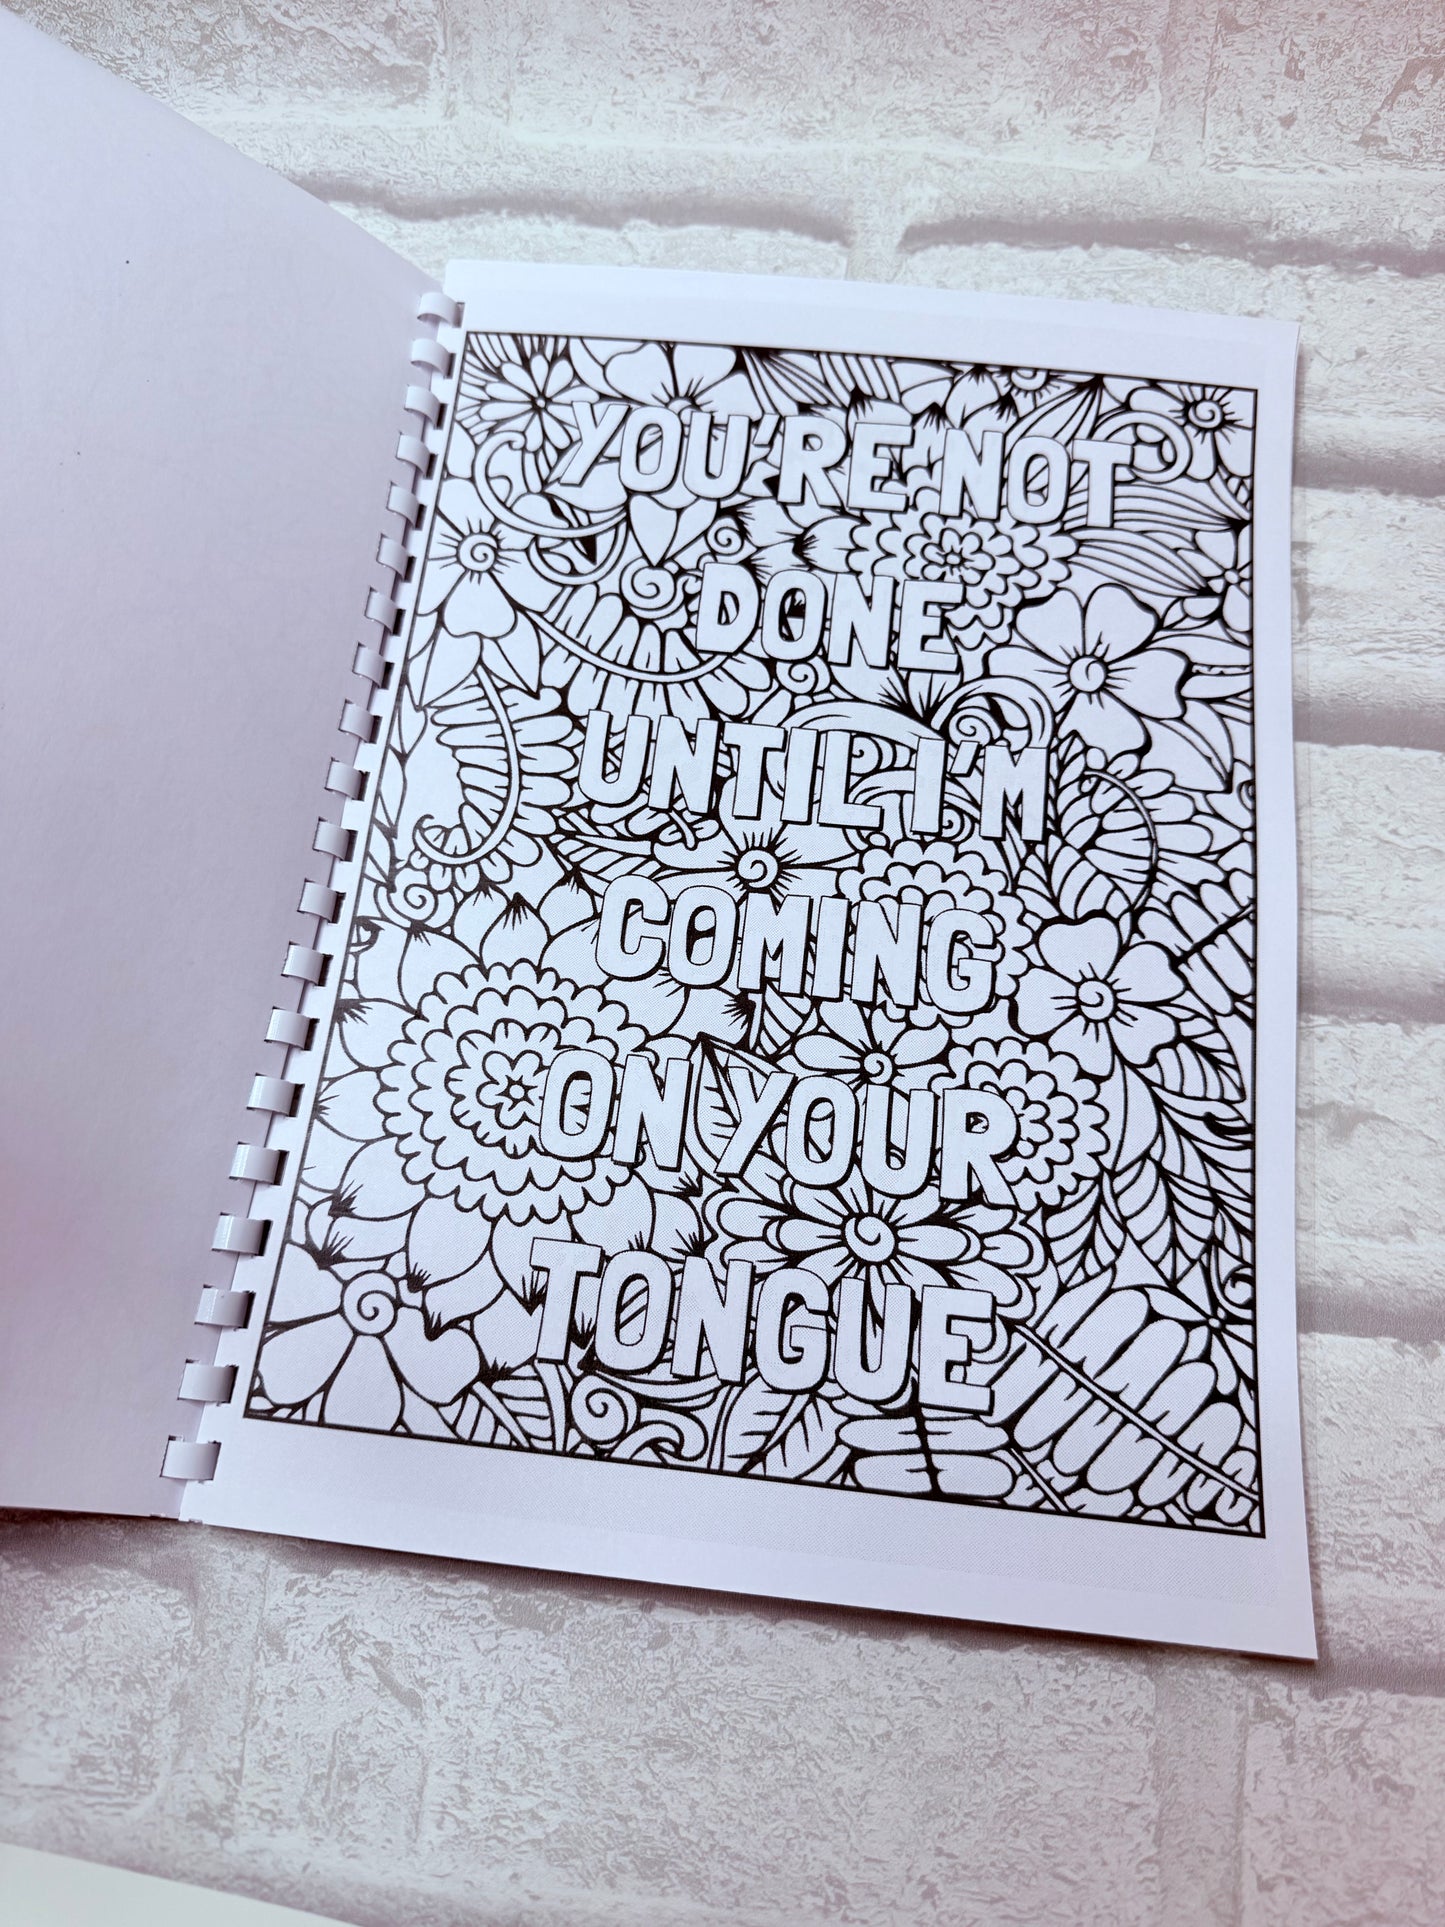 YOU'RE NOT
DONE
UNTIL I'M
COMING
ON YOUR
TONGUE